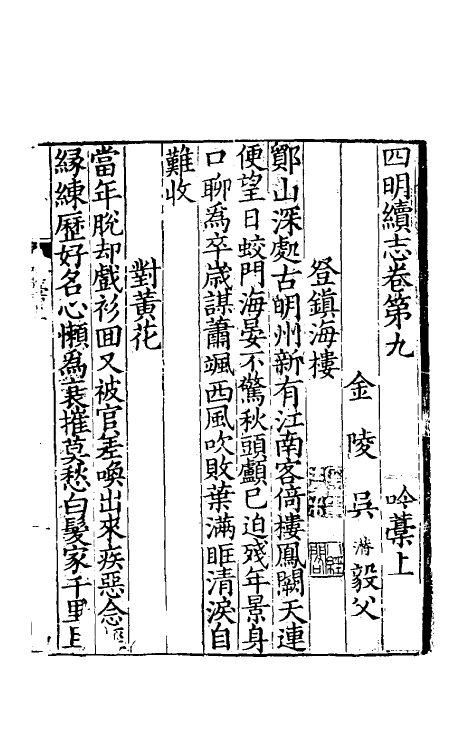 四明續志卷第九　吟藁上
金陵吳潛毅父
登鎮海樓
鄮山深處古明州新有江南客倚樓鳳闕天連
便望日蛟門海晏不驚秋頭顱已迫殘年景身
口聊為卒歲謀蕭颯西風吹敗葉滿眶清淚自
難收
對黃花
當年脫却戲衫囬又被官差喚出來疾惡念
緣練歷好名心懶為衰摧莫愁白髮家千里